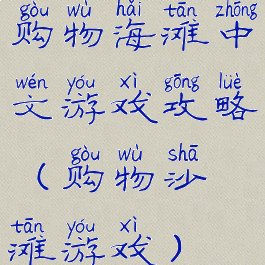 gòu wù hǎi tān zhōng
购物海滩中
wén yóu xì gōng lüè
文游戏攻略
gòu wù shā
（购物沙
tān yóu xì
滩游戏）